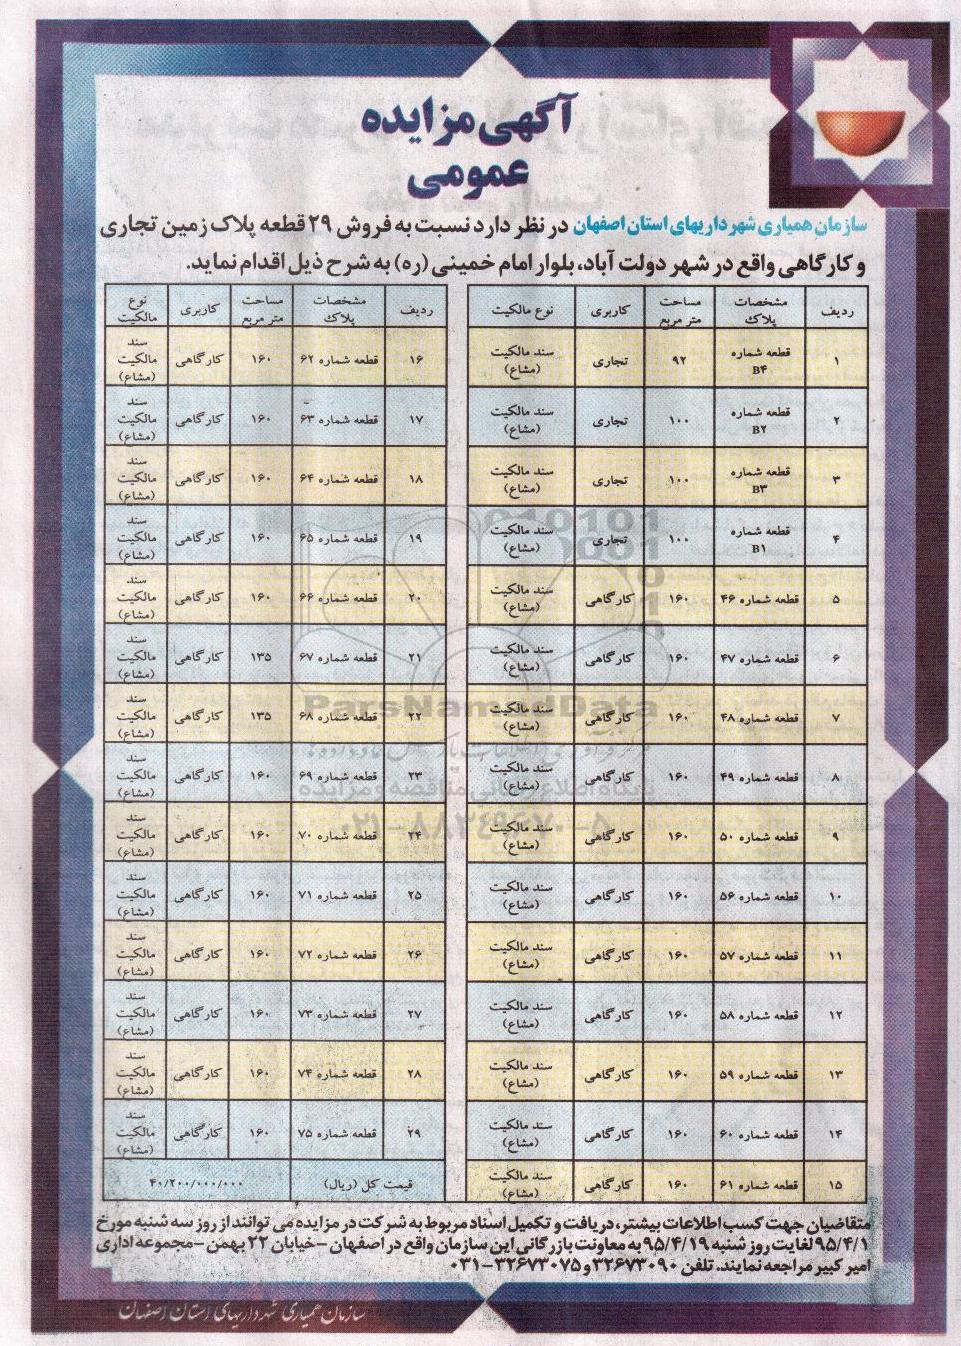 آگهی مزایده
عمومی
سازمان همیاری شهرداریهای استان اصفهان در نظر دارد نسبت به فروش ۲۹ قطعه پلاک زمین تجاری
و کارگاهی واقع در شهر دولت آباد، بلوار امام خمینی (ره) به شرح ذیل اقدام نماید.
ردیف مشخصات پلاک مساحت متر مربع کاربری نوع مالکیت
۱ قطعه شماره B۴ ۹۲ تجاری سند مالکیت (مشاع)
۲ قطعه شماره B۲ ۱۰۰ تجاری سند مالکیت (مشاع)
۳ قطعه شماره B۳ ۱۰۰ تجاری سند مالکیت (مشاع)
۴ قطعه شماره B۱ ۱۰۰ تجاری سند مالکیت (مشاع)
۵ قطعه شماره ۴۶ ۱۶۰ کارگاهی سند مالکیت (مشاع)
۶ قطعه شماره ۴۷ ۱۶۰ کارگاهی سند مالکیت (مشاع)
۷ قطعه شماره ۴۸ ۱۶۰ کارگاهی سند مالکیت (مشاع)
۸ قطعه شماره ۴۹ ۱۶۰ کارگاهی سند مالکیت (مشاع)
۹ قطعه شماره ۵۰ ۱۶۰ کارگاهی سند مالکیت (مشاع)
۱۰ قطعه شماره ۵۶ ۱۶۰ کارگاهی سند مالکیت (مشاع)
۱۱ قطعه شماره ۵۷ ۱۶۰ کارگاهی سند مالکیت (مشاع)
۱۲ قطعه شماره ۵۸ ۱۶۰ کارگاهی سند مالکیت (مشاع)
۱۳ قطعه شماره ۵۹ ۱۶۰ کارگاهی سند مالکیت (مشاع)
۱۴ قطعه شماره ۶۰ ۱۶۰ کارگاهی سند مالکیت (مشاع)
۱۵ قطعه شماره ۶۱ ۱۶۰ کارگاهی سند مالکیت (مشاع)
ردیف مشخصات پلاک مساحت متر مربع کاربری نوع مالکیت
۱۶ قطعه شماره ۶۲ ۱۶۰ کارگاهی سند مالکیت (مشاع)
۱۷ قطعه شماره ۶۳ ۱۶۰ کارگاهی سند مالکیت (مشاع)
۱۸ قطعه شماره ۶۴ ۱۶۰ کارگاهی سند مالکیت (مشاع)
۱۹ قطعه شماره ۶۵ ۱۶۰ کارگاهی سند مالکیت (مشاع)
۲۰ قطعه شماره ۶۶ ۱۶۰ کارگاهی سند مالکیت (مشاع)
۲۱ قطعه شماره ۶۷ ۱۳۵ کارگاهی سند مالکیت (مشاع)
۲۲ قطعه شماره ۶۸ ۱۳۵ کارگاهی سند مالکیت (مشاع)
۲۳ قطعه شماره ۶۹ ۱۶۰ کارگاهی سند مالکیت (مشاع)
۲۴ قطعه شماره ۷۰ ۱۶۰ کارگاهی سند مالکیت (مشاع)
۲۵ قطعه شماره ۷۱ ۱۶۰ کارگاهی سند مالکیت (مشاع)
۲۶ قطعه شماره ۷۲ ۱۶۰ کارگاهی سند مالکیت (مشاع)
۲۷ قطعه شماره ۷۳ ۱۶۰ کارگاهی سند مالکیت (مشاع)
۲۸ قطعه شماره ۷۴ ۱۶۰ کارگاهی سند مالکیت (مشاع)
۲۹ قطعه شماره ۷۵ ۱۶۰ کارگاهی سند مالکیت (مشاع)
قیمت کل (ریال) ۴۰/۲۰۰/۰۰۰/۰۰۰
ParsNamadData
پایگاه اطلاع رسانی مناقصه و مزایده
۰۲۱-۸۸۳۴۹۶۷۰-۵
متقاضیان جهت کسب اطلاعات بیشتر، دریافت و تکمیل اسناد مربوط به شرکت در مزایده می توانند از روز سه شنبه مورخ
۹۵/۴/۱ لغایت روز شنبه ۹۵/۴/۱۹ به معاونت بازرگانی این سازمان واقع در اصفهان - خیابان ۲۲ بهمن - مجموعه اداری
امیر کبیر مراجعه نمایند. تلفن ۳۲۶۷۳۰۹۰ و ۳۲۶۷۳۰۷۵-۰۳۱
سازمان همیاری شهرداریهای استان اصفهان